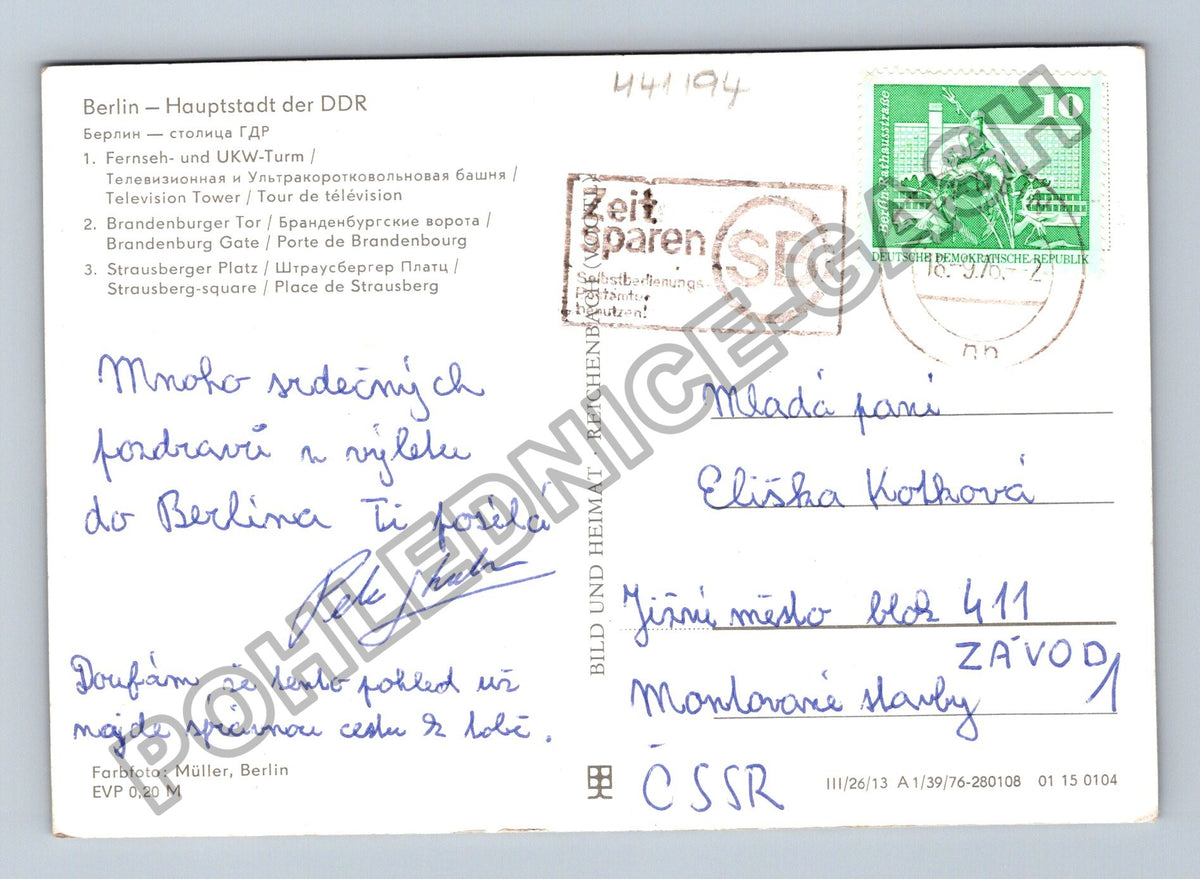 441194
Berlin – Hauptstadt der DDR
Берлин — столица ГДР
1. Fernseh- und UKW-Turm /
Телевизионная и Ультракоротковольновая башня /
Television Tower / Tour de télévision
2. Brandenburger Tor / Бранденбургские ворота /
Brandenburg Gate / Porte de Brandenbourg
3. Strausberger Platz / Штраусбергер Платц /
Strausberg-square / Place de Strausberg
Mnoho srdečných
pozdravů z výletu
do Berlína Ti posílá
Doufám, že tento pohled už
najde správnou cestu k tobě.
Farbfoto: Müller, Berlin
EVP 0,20 M
BILD UND HEIMAT · REICHENBACH (VOGTL)
Zeit
sparen
SB
Selbstbedienungs-
Postämter
benutzen!
10
Berlin, Rathausstraße
DEUTSCHE DEMOKRATISCHE REPUBLIK
Mladá paní
Eliška Kotková
Jižní město blok 411
ZÁVOD 1
Montované stavby
ČSSR
III/26/13 A 1/39/76-280108 01 15 0104
POHLEDNICE-GASH